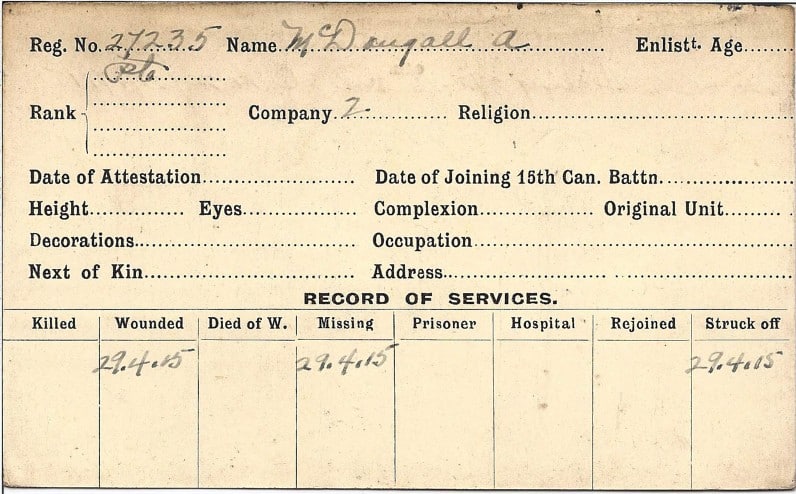 Reg. No. 27235 Name McDougall A Enlistt. Age
Pte
Rank Company 2 Religion
Date of Attestation Date of Joining 15th Can. Battn.
Height Eyes Complexion Original Unit
Decorations Occupation
Next of Kin Address
RECORD OF SERVICES.
Killed Wounded Died of W. Missing Prisoner Hospital Rejoined Struck off
29.4.15 29.4.15 29.4.15